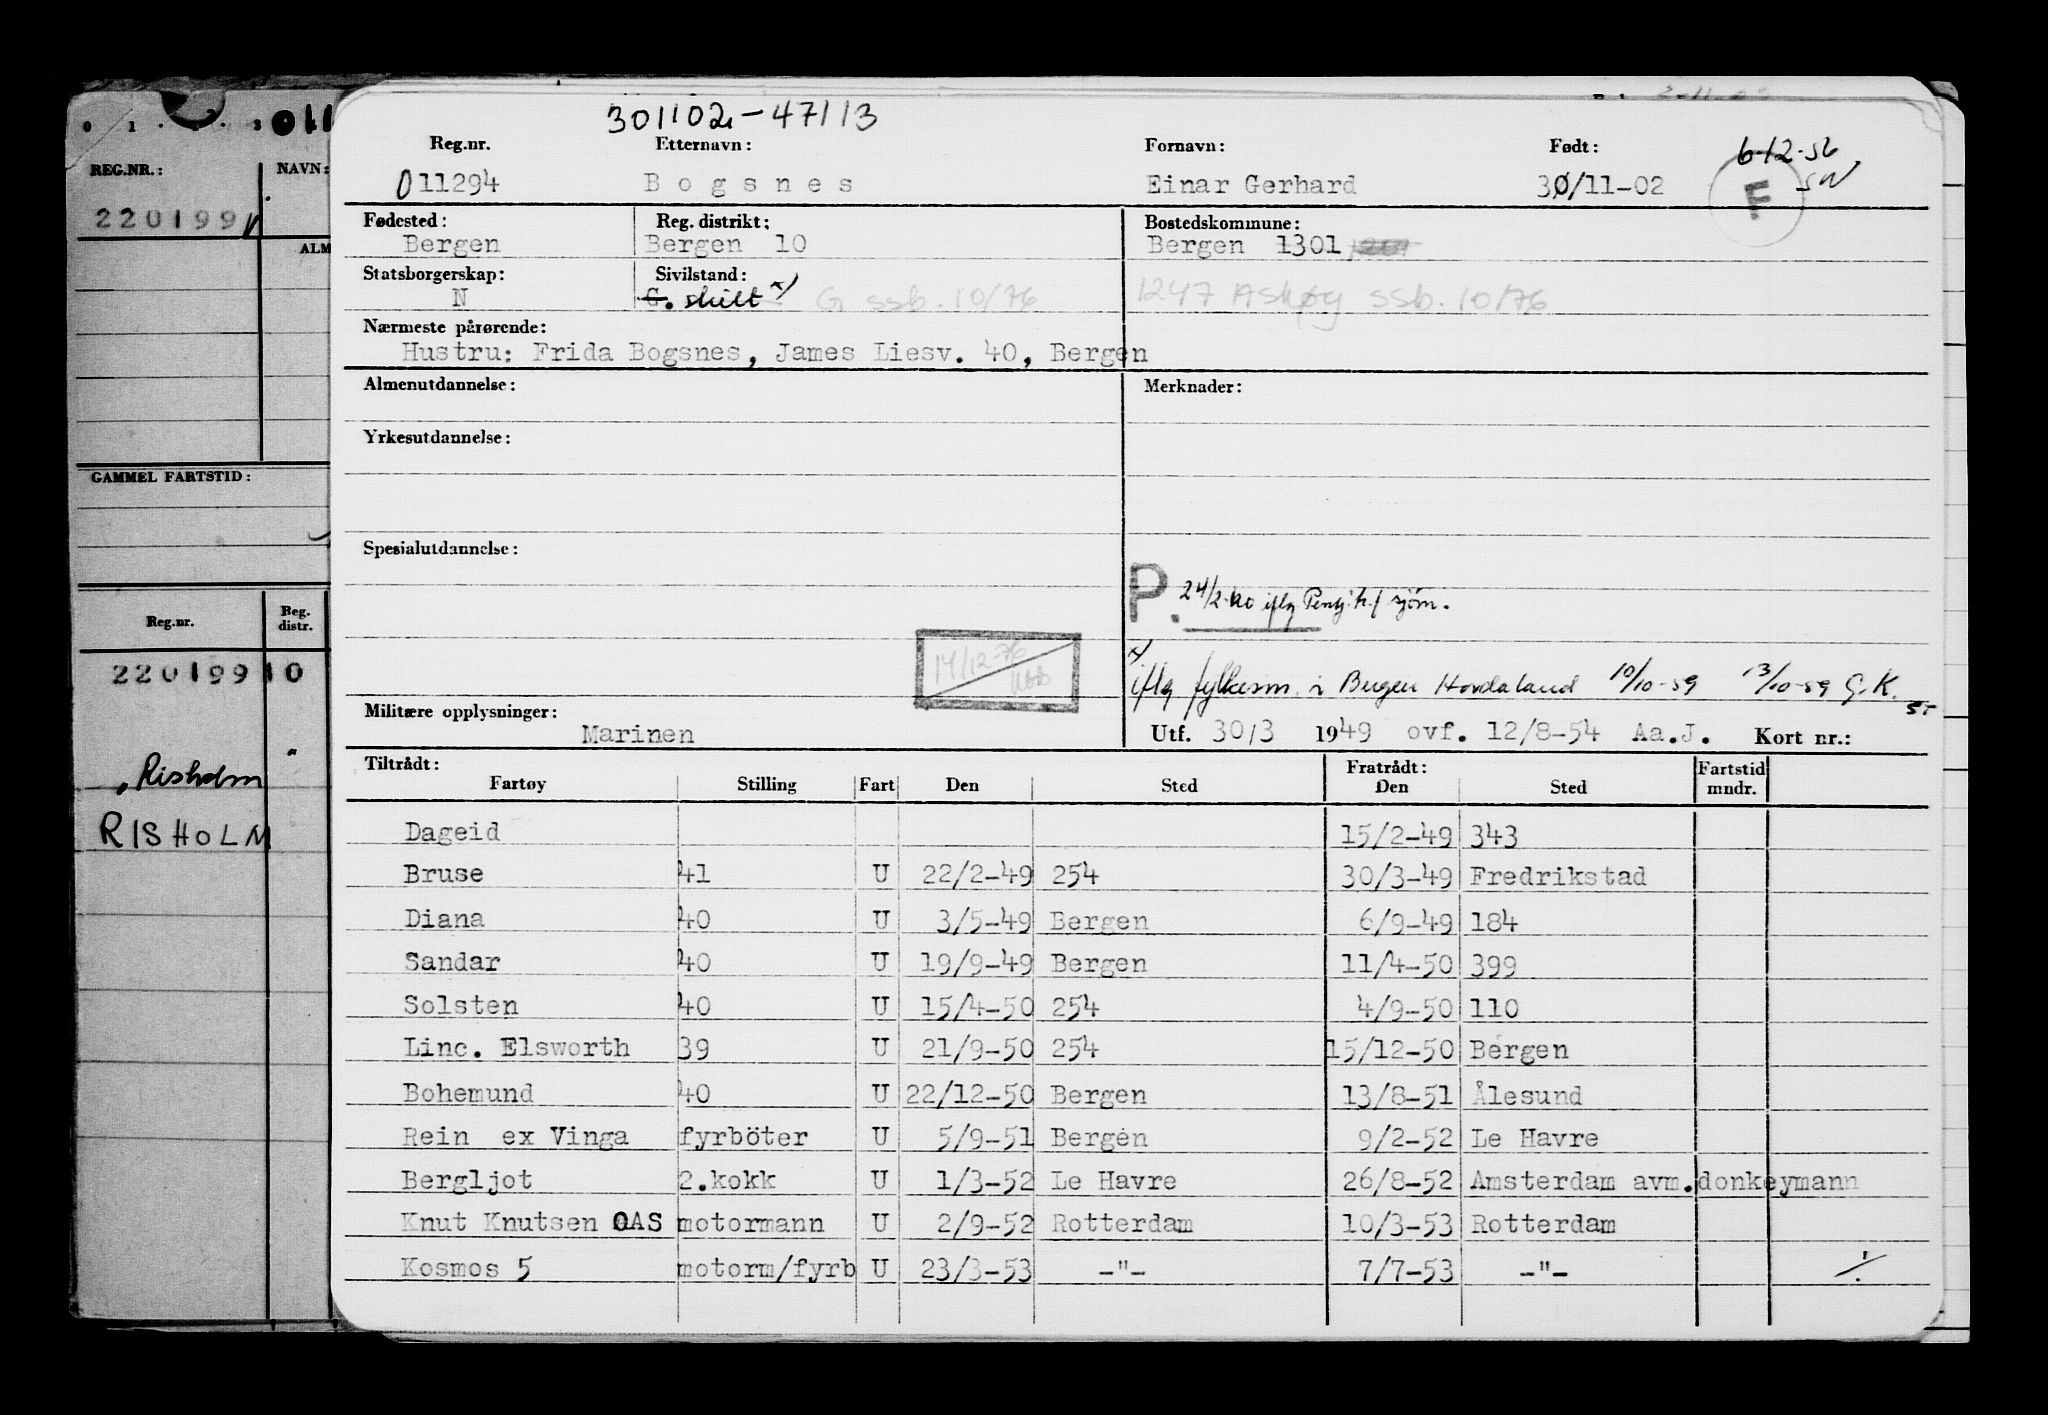 301102-47113
Reg.nr. Etternavn: Fornavn: Født: 6-12-56
011294 Bogsnes Einar Gerhard 30/11-02 SW
F
Fødested: Reg. distrikt: Bostedskommune:
Bergen Bergen 10 Bergen 1301
Statsborgerskap: Sivilstand:
N G. skilt x) G ssb. 10/76 1247 Askøy ssb. 10/76
Nærmeste pårørende:
Hustru: Frida Bogsnes, James Liesv. 40, Bergen
Almenutdannelse: Merknader:
Yrkesutdannelse:
Spesialutdannelse:
P. 24/2-60 iflg Pensj.h. f sjøm.
14/12-76
x) iflg fylkesm. i Bergen Hordaland 10/10-59 13/10-59 G.K.
ST
Militære opplysninger:
Marinen Utf. 30/3 1949 ovf. 12/8-54 Aa.J. Kort nr.:
Tiltrådt: Fratrådt: Fartstid
Fartøy Stilling Fart Den Sted Den Sted mndr.
Dageid 15/2-49 343
Bruse 41 U 22/2-49 254 30/3-49 Fredrikstad
Diana 40 U 3/5-49 Bergen 6/9-49 184
Sandar 40 U 19/9-49 Bergen 11/4-50 399
Solsten 40 U 15/4-50 254 4/9-50 110
Linc. Elsworth 39 U 21/9-50 254 15/12-50 Bergen
Bohemund 40 U 22/12-50 Bergen 13/8-51 Ålesund
Rein ex Vinga fyrböter U 5/9-51 Bergen 9/2-52 Le Havre
Bergljot 2.kokk U 1/3-52 Le Havre 26/8-52 Amsterdam avm.donkeymann
Knut Knutsen OAS motormann U 2/9-52 Rotterdam 10/3-53 Rotterdam
Kosmos 5 motorm/fyrb U 23/3-53 -"- 7/7-53 -"- ./.
011
REG.NR.: NAVN:
220199
ALM
GAMMEL FARTSTID:
Reg.nr. Reg. distr.
220199 10
Risholm "
RISHOLM